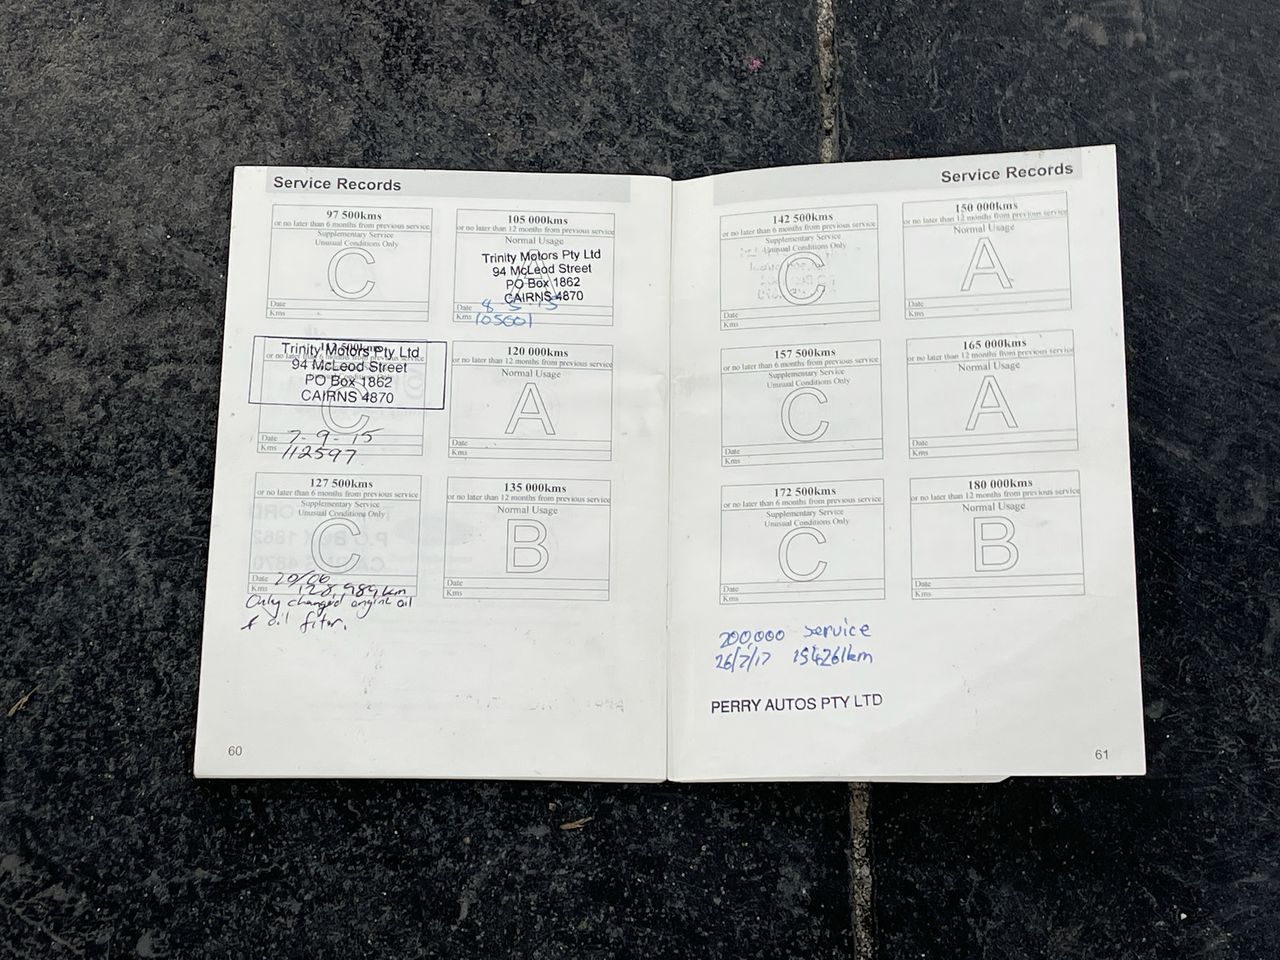 Service Records
97 500kms
or no later than 6 months from previous service
Supplementary Service
Unusual Conditions Only
C
Date
Kms
105 000kms
or no later than 12 months from previous service
Normal Usage
A
Trinity Motors Pty Ltd
94 McLeod Street
PO Box 1862
CAIRNS 4870
Date 8-5-15
Kms 105601
Trinity Motors Pty Ltd
94 McLeod Street
PO Box 1862
CAIRNS 4870
C
Date 7-9-15
Kms 112597
120 000kms
or no later than 12 months from previous service
Normal Usage
A
Date
Kms
127 500kms
or no later than 6 months from previous service
Supplementary Service
Unusual Conditions Only
C
Date 20/06
Kms 128,989km
Only changed engine oil
& oil filter.
135 000kms
or no later than 12 months from previous service
Normal Usage
B
Date
Kms
60
Service Records
142 500kms
or no later than 6 months from previous service
Supplementary Service
Unusual Conditions Only
C
Date
Kms
150 000kms
or no later than 12 months from previous service
Normal Usage
A
Date
Kms
157 500kms
or no later than 6 months from previous service
Supplementary Service
Unusual Conditions Only
C
Date
Kms
165 000kms
or no later than 12 months from previous service
Normal Usage
A
Date
Kms
172 500kms
or no later than 6 months from previous service
Supplementary Service
Unusual Conditions Only
C
Date
Kms
180 000kms
or no later than 12 months from previous service
Normal Usage
B
Date
Kms
200,000 service
26/7/17 154261km
PERRY AUTOS PTY LTD
61